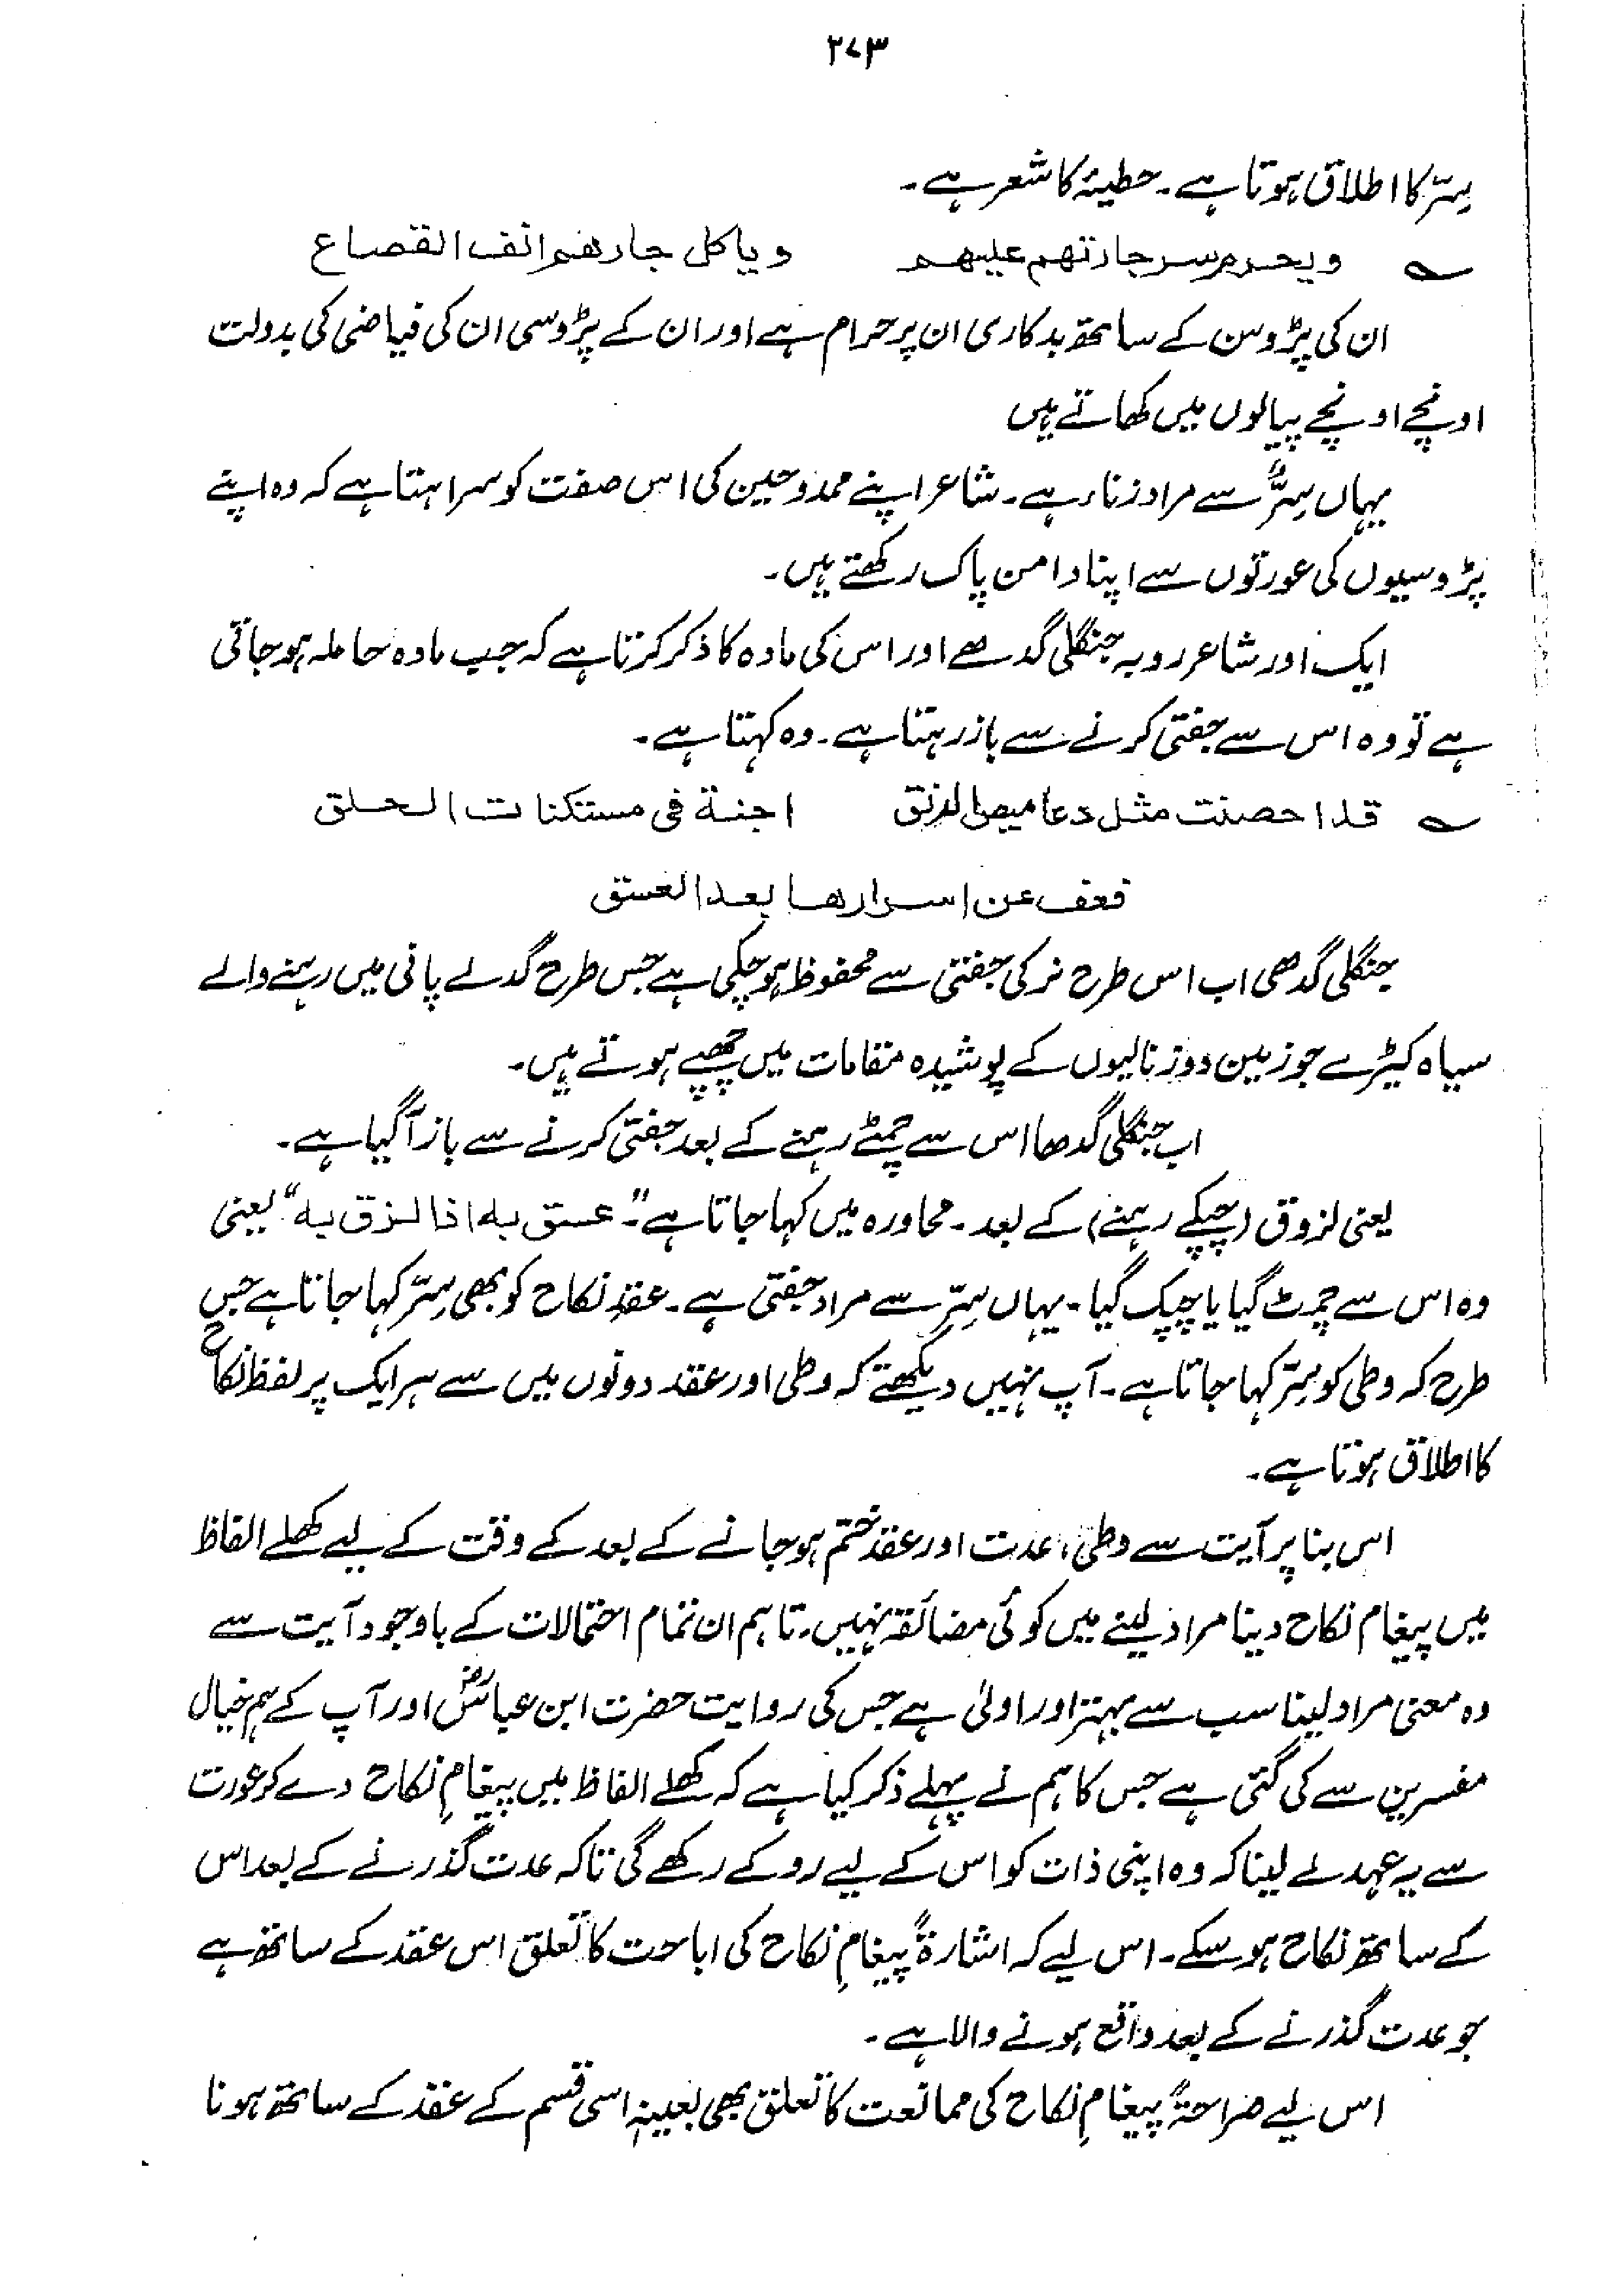 ۲۷۳
سِرّ کا اطلاق ہوتا ہے۔ حطیئہ کا شعر ہے۔
؎ ویحرم سر جارتھم علیھم ویاکل جارھم انف القصاع
ان کی پڑوسن کے ساتھ بدکاری ان پر حرام ہے اور ان کے پڑوسی ان کی فیاضی کی بدولت
اونچے اونچے پیالوں میں کھاتے ہیں
یہاں سِرٌّ سے مراد زناء ہے۔ شاعر اپنے ممدوحین کی اس صفت کو سراہتا ہے کہ وہ اپنے
پڑوسیوں کی عورتوں سے اپنا دامن پاک رکھتے ہیں۔
ایک اور شاعر روبہ جنگلی گدھے اور اس کی مادہ کا ذکر کرتا ہے کہ جب مادہ حاملہ ہوجاتی
ہے تو وہ اس سے جفتی کرنے سے باز رہتا ہے۔ وہ کہتا ہے۔
؎ قد احصنت مثل دعامیص الرنق اجنة فی مستکنات الحلق
فعف عن اسرارھا بعد العسق
جنگلی گدھی اب اس طرح نر کی جفتی سے محفوظ ہوچکی ہے جس طرح گدلے پانی میں رہنے والے
سیاہ کیڑے جو زمین دوز نالیوں کے پوشیدہ مقامات میں چھپے ہوتے ہیں۔
اب جنگلی گدھا اس سے چمٹے رہنے کے بعد جفتی کرنے سے باز آگیا ہے۔
یعنی لزوق (چپکے رہنے) کے بعد۔ محاورہ میں کہا جاتا ہے "۔ عسق بہ اذا لزق بہ" یعنی
وہ اس سے چمٹ گیا یا چپک گیا۔ یہاں سِرّ سے مراد جفتی ہے۔ عقدِ نکاح کو بھی سِرّ کہا جاتا ہے جس
طرح کہ وطی کو سِرّ کہا جاتا ہے۔ آپ نہیں دیکھتے کہ وطی اور عقد دونوں میں سے ہر ایک پر لفظ نکاح
کا اطلاق ہوتا ہے۔
اس بنا پر آیت سے وطی، عدت اور عقد ختم ہوجانے کے بعد کے وقت کے لیے کھلے الفاظ
میں پیغام نکاح دینا مراد لینے میں کوئی مضائقہ نہیں۔ تاہم ان تمام احتمالات کے باوجود آیت سے
وہ معنی مراد لینا سب سے بہتر اور اولیٰ ہے جس کی روایت حضرت ابن عباسؓ اور آپ کے ہم خیال
مفسرین سے کی گئی ہے جس کا ہم نے پہلے ذکر کیا ہے کہ کھلے الفاظ میں پیغامِ نکاح دے کر عورت
سے یہ عہد لے لینا کہ وہ اپنی ذات کو اس کے لیے روکے رکھے گی تاکہ عدت گذرنے کے بعد اس
کے ساتھ نکاح ہوسکے۔ اس لیے کہ اشارۃً پیغامِ نکاح کی اباحت کا تعلق اس عقد کے ساتھ ہے
جو عدت گذرنے کے بعد واقع ہونے والا ہے۔
اس لیے صراحۃً پیغامِ نکاح کی ممانعت کا تعلق بھی بعینہٖ اسی قسم کے عقد کے ساتھ ہونا